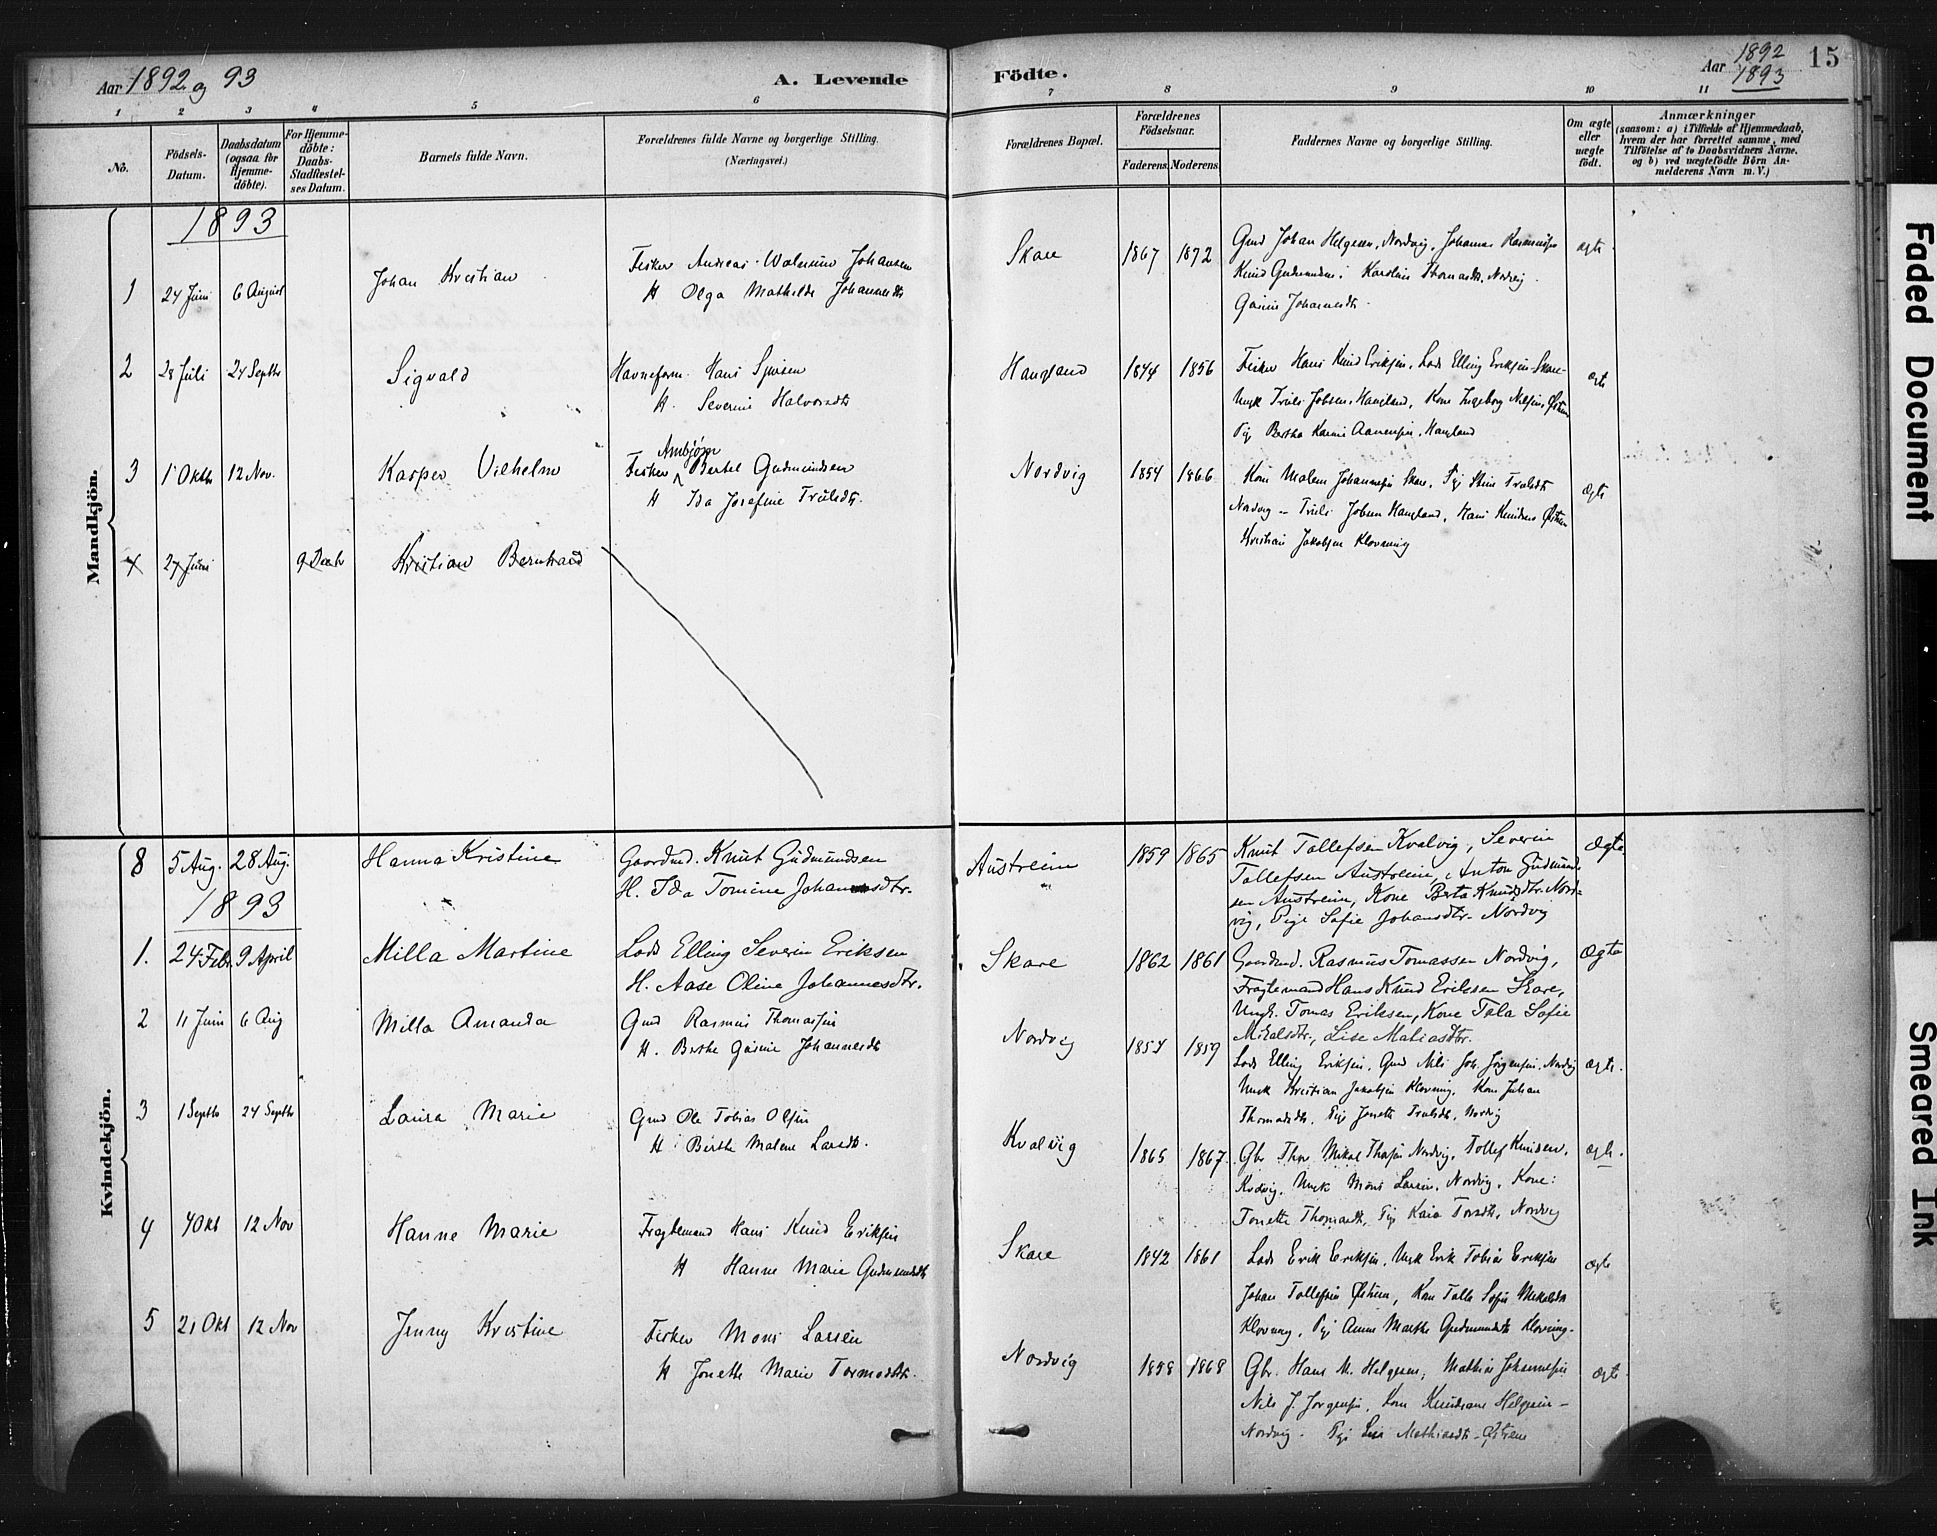 Aar 1892 og 93
A. Levende Födte.
Aar 1892 1893
15
1 2 3 4 5 6 7 8 9 10 11
No.
Födsels-Datum.
Daabsdatum (ogsaa for Hjemme-döbte).
For Hjemme-döbte: Daabs-Stadfæstel-ses Datum.
Barnets fulde Navn.
Forældrenes fulde Navne og borgerlige Stilling. (Næringsvei.)
Forældrenes Bopæl.
Forældrenes Födselsaar.
Faderens. Moderens.
Faddernes Navne og borgerlige Stilling.
Om ægte eller uægte födt.
Anmærkninger
(saasom: a) i Tilfælde af Hjemmedaab,
hvem der har forrettet samme, med
Tilföielse af to Daabsvidners Navne.
og b) ved uægtefödte Börn An-
melderens Navn m. V.)
Mandkjön.
1893
1 24 Juni 6 August Johan Kristian Fisker Andreas Johansen Skare 1867 1872 Gmd Johan Helgesen, Nordvig, Johannes
H Olga Mathilde Johannesdtr Knud Gudmundsen Karoline Thomasdtr. Nordvig
Johannesdtr. ægte
2 28 Juli 24 Septbr Sigvald Havneform. Hans Haugland 1844 1856 Fisker Hans Knud Eriksen, Lods Elling Eriksen Skare
H. Severine Halvorsdtr Ungk Truls Jobsen, Haugland, Kone Ingeborg
Pige Bertha Haugland ægte
3 1 Oktbr 12 Nov. Kasper Vilhelm Fisker Arnbjørn Bertel Gudmundsen Nordvig 1854 1866 Kone Malene Skare, Pige Stine Trulsdtr
H Ida Josefine Trulsdtr. Nordvig – Truls Jobsen Haugland, Hans Knudsen
Kristian Jakobsen Klovning ægte
4 27 Juni 9 Decbr Kristian Bernhard
Kvindekjön.
8 5 Aug. 28 Aug. Hanna Kristine Gaardmd. Knut Gudmundsen Austreim 1859 1865 Knut Tollefsen Kvalvig, Severin
H. Ida Tomine Johannesdtr. Tollefsen Austreim, Anton Gudmund-
sen Austreim, Kone Berta Knudsdtr. Nord-
vig, Pige Sofie Johansdtr. Nordvig Ægte
1893
1. 24 Febr. 9 April Milla Martine Lods Elling Severin Eriksen Skare 1862 1861 Gaardmd. Rasmus Tomassen Nordvig,
H. Aase Oline Johannesdtr. Fragtemand Hans Knud Eriksen Skare,
Ungk. Tomas Eriksen, Kone Tala Sofie
Mikalsdtr., Lise Matiasdtr. Ægte
2 11 Juni 6 Aug Milla Amanda Gmd Rasmus Thomassen Nordvig 1854 1859 Lods Elling Eriksen, Gmd Nils Joh. Jørgensen, Nordvig
H. Berthe Johannesdtr Ungk Kristian Jakobsen Klovning, Kone
Thomasdtr, Pige Jonette Trulsdtr, Nordvig ægte.
3 1 Septbr 24 Septbr Laura Marie Gmd Ole Tobias Olsen Kvalvig 1865 1867 Gbr Mikal Nordvig, Tollef Knudsen,
H Berthe Malene Larsdtr. Kvalvig, Ungk Mons Larsen, Nordvig, Kone:
Tonette Thomasdtr, Pige Kaia Nordvig ægte.
4 4 Okt 12 Nov Hanne Marie Fragtemand Hans Knud Eriksen Skare 1842 1861 Lods Erik Eriksen, Ungk Erik Tobias Eriksen
H Hanne Marie Gudmundsdtr Johan Tollefsen, Kone Talle Sofie Mikalsdtr
Klovning, Pige Anne Marthe Gudmundsdtr Klovning. ægte
5 21 Okt 12 Nov Jenny Kristine Fisker Mons Larsen Nordvig 1858 1868 Gbr. Hans M. Helgesen, Mathias Johannesen
H Jonette Marie Tormodsdtr. Nils J. Jørgensen, Kone Helgesen –
Nordvig. Pige Lise Mathiasdtr ægte
Faded Document
Smeared Ink